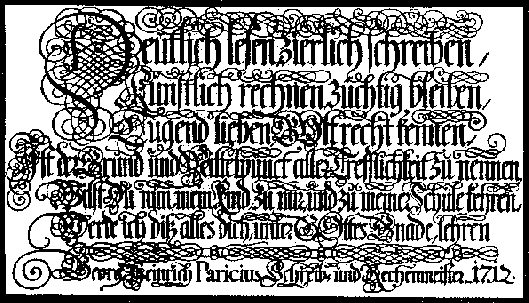 Deutlich lesen, zierlich schreiben,
Künstlich rechnen, züchtig bleiben,
Tugend lieben, GOtt recht kennen,
Ist der Grund und Mittelpunct aller Trefflichkeit zu nennen,
Willst Du nun mein Kind zu mir und zu meiner Schule kehren,
Werde ich diß alles dich unter GOttes Gnade lehren
Georg Heinrich Paricius, Schreib- und Rechenmeister. 1712.